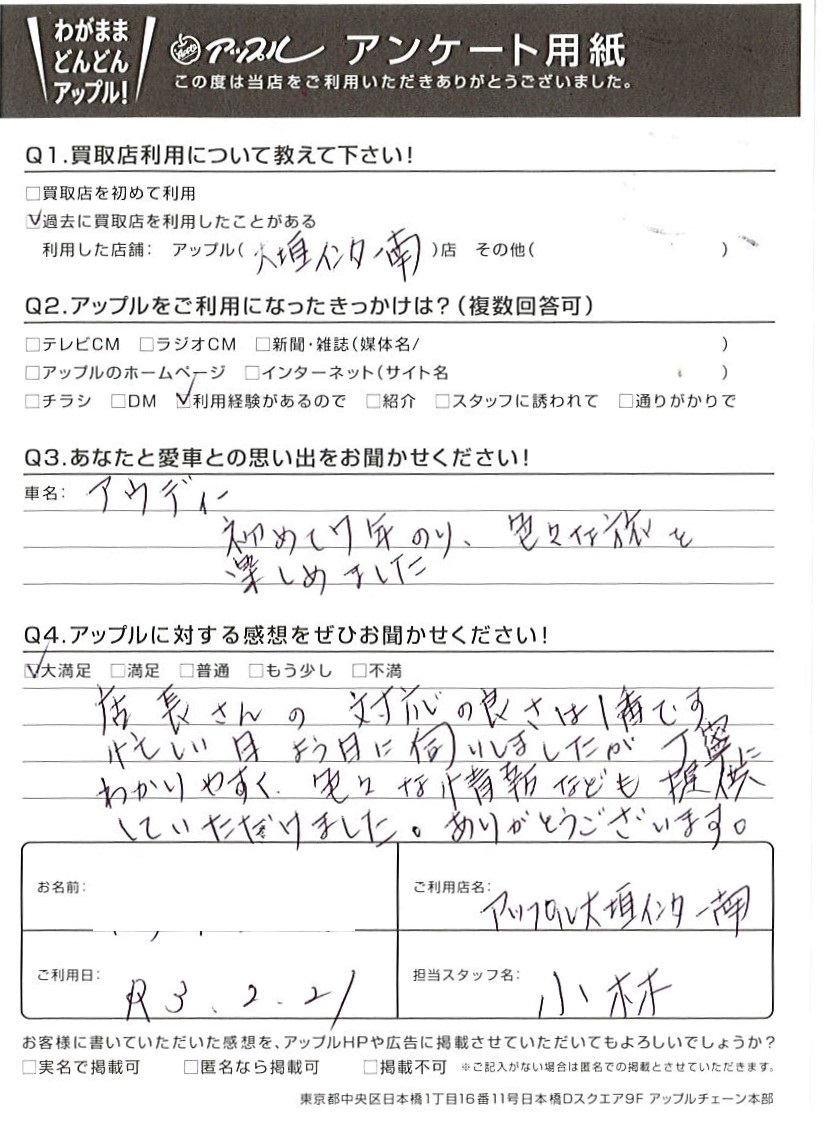 わがまま
どんどん
アップル!
アップル アンケート用紙
この度は当店をご利用いただきありがとうございました。
Q1.買取店利用について教えて下さい!
□買取店を初めて利用
☑過去に買取店を利用したことがある
利用した店舗: アップル(大垣インター南)店 その他( )
Q2.アップルをご利用になったきっかけは?(複数回答可)
□テレビCM □ラジオCM □新聞・雑誌(媒体名/ )
□アップルのホームページ □インターネット(サイト名 )
□チラシ □DM ☑利用経験があるので □紹介 □スタッフに誘われて □通りがかりで
Q3.あなたと愛車との思い出をお聞かせください!
車名: アウディー
初めて7年のり、色々な旅を
楽しめました
Q4.アップルに対する感想をぜひお聞かせください!
☑大満足 □満足 □普通 □もう少し □不満
店長さんの対応の良さは1番です
忙しい日よう日に伺いしましたが丁寧に
わかりやすく、色々な情報なども提供
していただけました。ありがとうございます。
お名前:
ご利用店名: アップル大垣インター南
ご利用日: R3.2.21
担当スタッフ名: 小林
お客様に書いていただいた感想を、アップルHPや広告に掲載させていただいてもよろしいでしょうか?
□実名で掲載可 □匿名なら掲載可 □掲載不可 ※ご記入がない場合は匿名での掲載とさせていただきます。
東京都中央区日本橋1丁目16番11号日本橋Dスクエア9F アップルチェーン本部